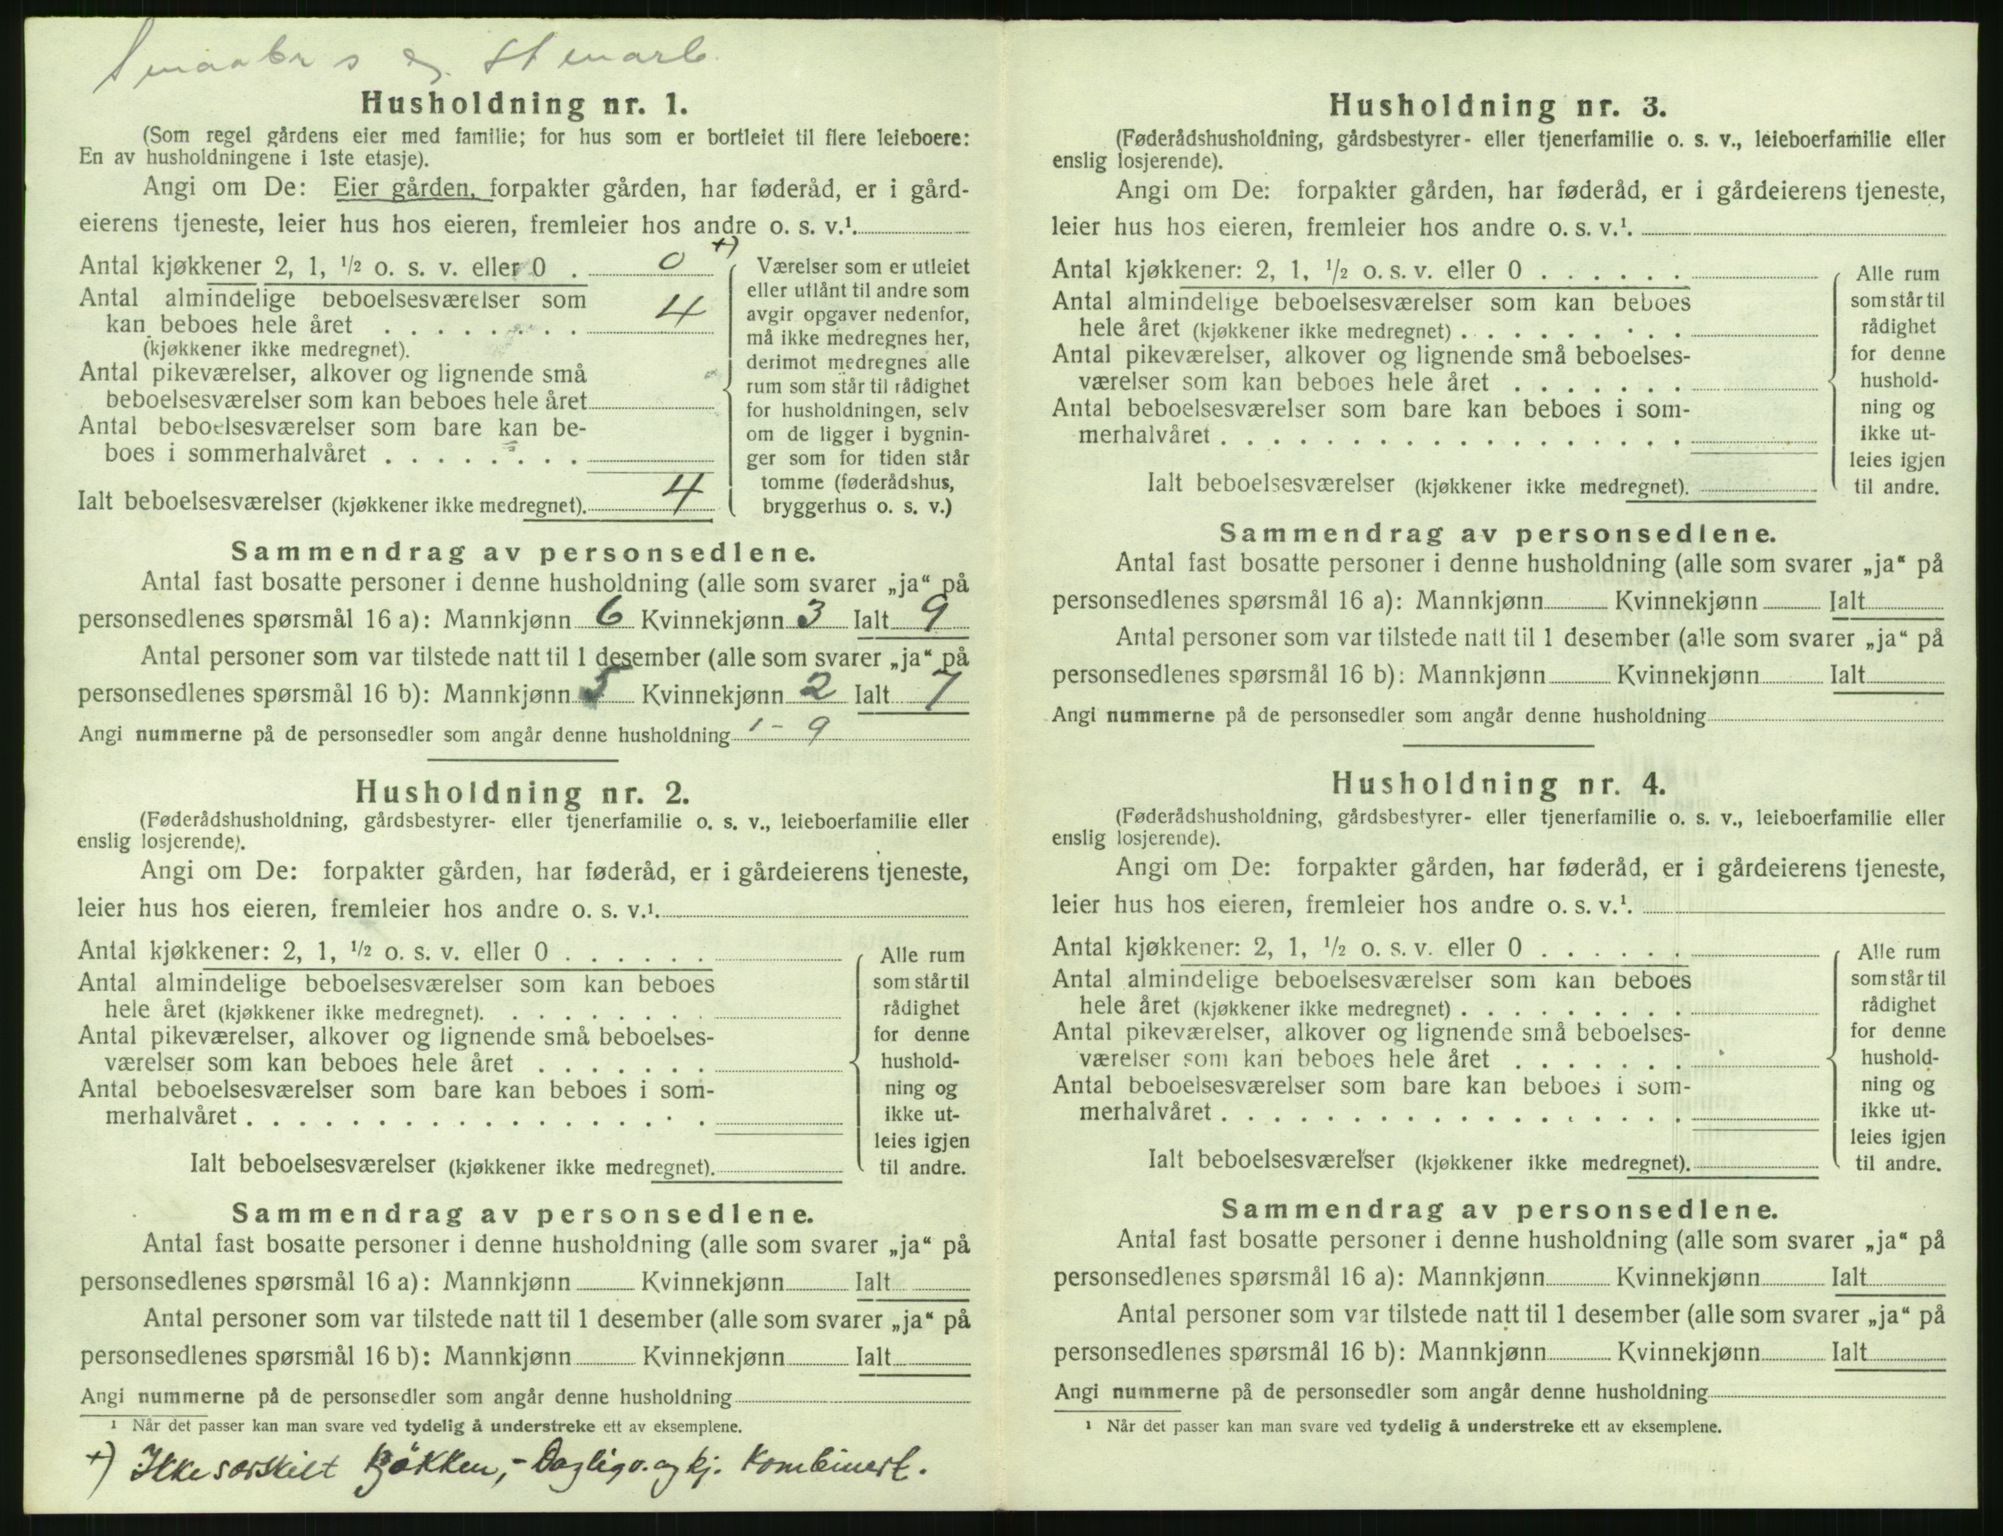 Smaabr s og stenarb.
Husholdning nr. 1.
(Som regel gårdens eier med familie; for hus som er bortleiet til flere leieboere:
En av husholdningene i 1ste etasje).
Angi om De: Eier gården, forpakter gården, har føderåd, er i gård-
eierens tjeneste, leier hus hos eieren, fremleier hos andre o. s. v.¹.
Antal kjøkkener 2, 1, ½ o. s. v. eller 0 . 0 +)
Antal almindelige beboelsesværelser som
kan beboes hele året . . . . . . . . 4
(kjøkkener ikke medregnet).
Antal pikeværelser, alkover og lignende små
beboelsesværelser som kan beboes hele året
Antal beboelsesværelser som bare kan be-
boes i sommerhalvåret . . . . . . . .
Ialt beboelsesværelser (kjøkkener ikke medregnet). 4
Værelser som er utleiet
eller utlånt til andre som
avgir opgaver nedenfor,
må ikke medregnes her,
derimot medregnes alle
rum som står til rådighet
for husholdningen, selv
om de ligger i bygnin-
ger som for tiden står
tomme (føderådshus,
bryggerhus o. s. v.)
Sammendrag av personsedlene.
Antal fast bosatte personer i denne husholdning (alle som svarer „ja“ på
personsedlenes spørsmål 16 a): Mannkjønn 6 Kvinnekjønn 3 Ialt 9
Antal personer som var tilstede natt til 1 desember (alle som svarer „ja“ på
personsedlenes spørsmål 16 b): Mannkjønn 5 Kvinnekjønn 2 Ialt 7
Angi nummerne på de personsedler som angår denne husholdning 1 - 9
Husholdning nr. 2.
(Føderådshusholdning, gårdsbestyrer- eller tjenerfamilie o. s. v., leieboerfamilie eller
enslig losjerende).
Angi om De: forpakter gården, har føderåd, er i gårdeierens tjeneste,
leier hus hos eieren, fremleier hos andre o. s. v.¹.
Antal kjøkkener: 2, 1, ½ o. s. v. eller 0 . . . . . .
Antal almindelige beboelsesværelser som kan beboes
hele året (kjøkkener ikke medregnet). . . . . . . . .
Antal pikeværelser, alkover og lignende små beboelses-
værelser som kan beboes hele året . . . . . . .
Antal beboelsesværelser som bare kan beboes i som-
merhalvåret . . . . . . . . . . . . . . . . . .
Ialt beboelsesværelser (kjøkkener ikke medregnet).
Alle rum
som står til
rådighet
for denne
hushold-
ning og
ikke ut-
leies igjen
til andre.
Sammendrag av personsedlene.
Antal fast bosatte personer i denne husholdning (alle som svarer „ja“ på
personsedlenes spørsmål 16 a): Mannkjønn Kvinnekjønn Ialt
Antal personer som var tilstede natt til 1 desember (alle som svarer „ja“ på
personsedlenes spørsmål 16 b): Mannkjønn Kvinnekjønn Ialt
Angi nummerne på de personsedler som angår denne husholdning
¹ Når det passer kan man svare ved tydelig å understreke ett av eksemplene.
+) Ikke særskilt kjøkken, - Daglig v. og kj. kombinert.
Husholdning nr. 3.
(Føderådshusholdning, gårdsbestyrer- eller tjenerfamilie o. s. v., leieboerfamilie eller
enslig losjerende).
Angi om De: forpakter gården, har føderåd, er i gårdeierens tjeneste,
leier hus hos eieren, fremleier hos andre o. s. v.¹.
Antal kjøkkener: 2, 1, ½ o. s. v. eller 0 . . . . . .
Antal almindelige beboelsesværelser som kan beboes
hele året (kjøkkener ikke medregnet) . . . . . . . . .
Antal pikeværelser, alkover og lignende små beboelses-
værelser som kan beboes hele året . . . . . . .
Antal beboelsesværelser som bare kan beboes i som-
merhalvåret . . . . . . . . . . . . . . . . . .
Ialt beboelsesværelser (kjøkkener ikke medregnet).
Alle rum
som står til
rådighet
for denne
hushold-
ning og
ikke ut-
leies igjen
til andre.
Sammendrag av personsedlene.
Antal fast bosatte personer i denne husholdning (alle som svarer „ja“ på
personsedlenes spørsmål 16 a): Mannkjønn Kvinnekjønn Ialt
Antal personer som var tilstede natt til 1 desember (alle som svarer „ja“ på
personsedlenes spørsmål 16 b): Mannkjønn Kvinnekjønn Ialt
Angi nummerne på de personsedler som angår denne husholdning
Husholdning nr. 4.
(Føderådshusholdning, gårdsbestyrer- eller tjenerfamilie o. s. v., leieboerfamilie eller
enslig losjerende).
Angi om De: forpakter gården, har føderåd, er i gårdeierens tjeneste,
leier hus hos eieren, fremleier hos andre o. s. v.¹.
Antal kjøkkener: 2, 1, ½ o. s. v. eller 0 . . . . . .
Antal almindelige beboelsesværelser som kan beboes
hele året (kjøkkener ikke medregnet) . . . . . . . . .
Antal pikeværelser, alkover og lignende små beboelses-
værelser som kan beboes hele året . . . . . . .
Antal beboelsesværelser som bare kan beboes i som-
merhalvåret . . . . . . . . . . . . . . . . . .
Ialt beboelsesværelser (kjøkkener ikke medregnet).
Alle rum
som står til
rådighet
for denne
hushold-
ning og
ikke ut-
leies igjen
til andre.
Sammendrag av personsedlene.
Antal fast bosatte personer i denne husholdning (alle som svarer „ja“ på
personsedlenes spørsmål 16 a): Mannkjønn Kvinnekjønn Ialt
Antal personer som var tilstede natt til 1 desember (alle som svarer „ja“ på
personsedlenes spørsmål 16 b): Mannkjønn Kvinnekjønn Ialt
Angi nummerne på de personsedler som angår denne husholdning
¹ Når det passer kan man svare ved tydelig å understreke ett av eksemplene.